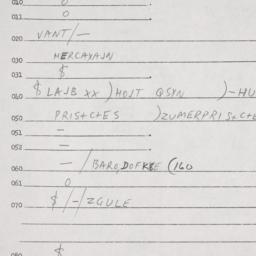 010 0
011 0
020 VANT/—
030 MERCAYAJN
031 $
040 $ LAJB XX )HOJT QSYN )-HU
050 PRIS+C+ES )ZUMERPRIS+C+E
051 —
052 —
060 — /BARO,DOFKEE (160
061 0
070 $/-/ZGULE
080 $